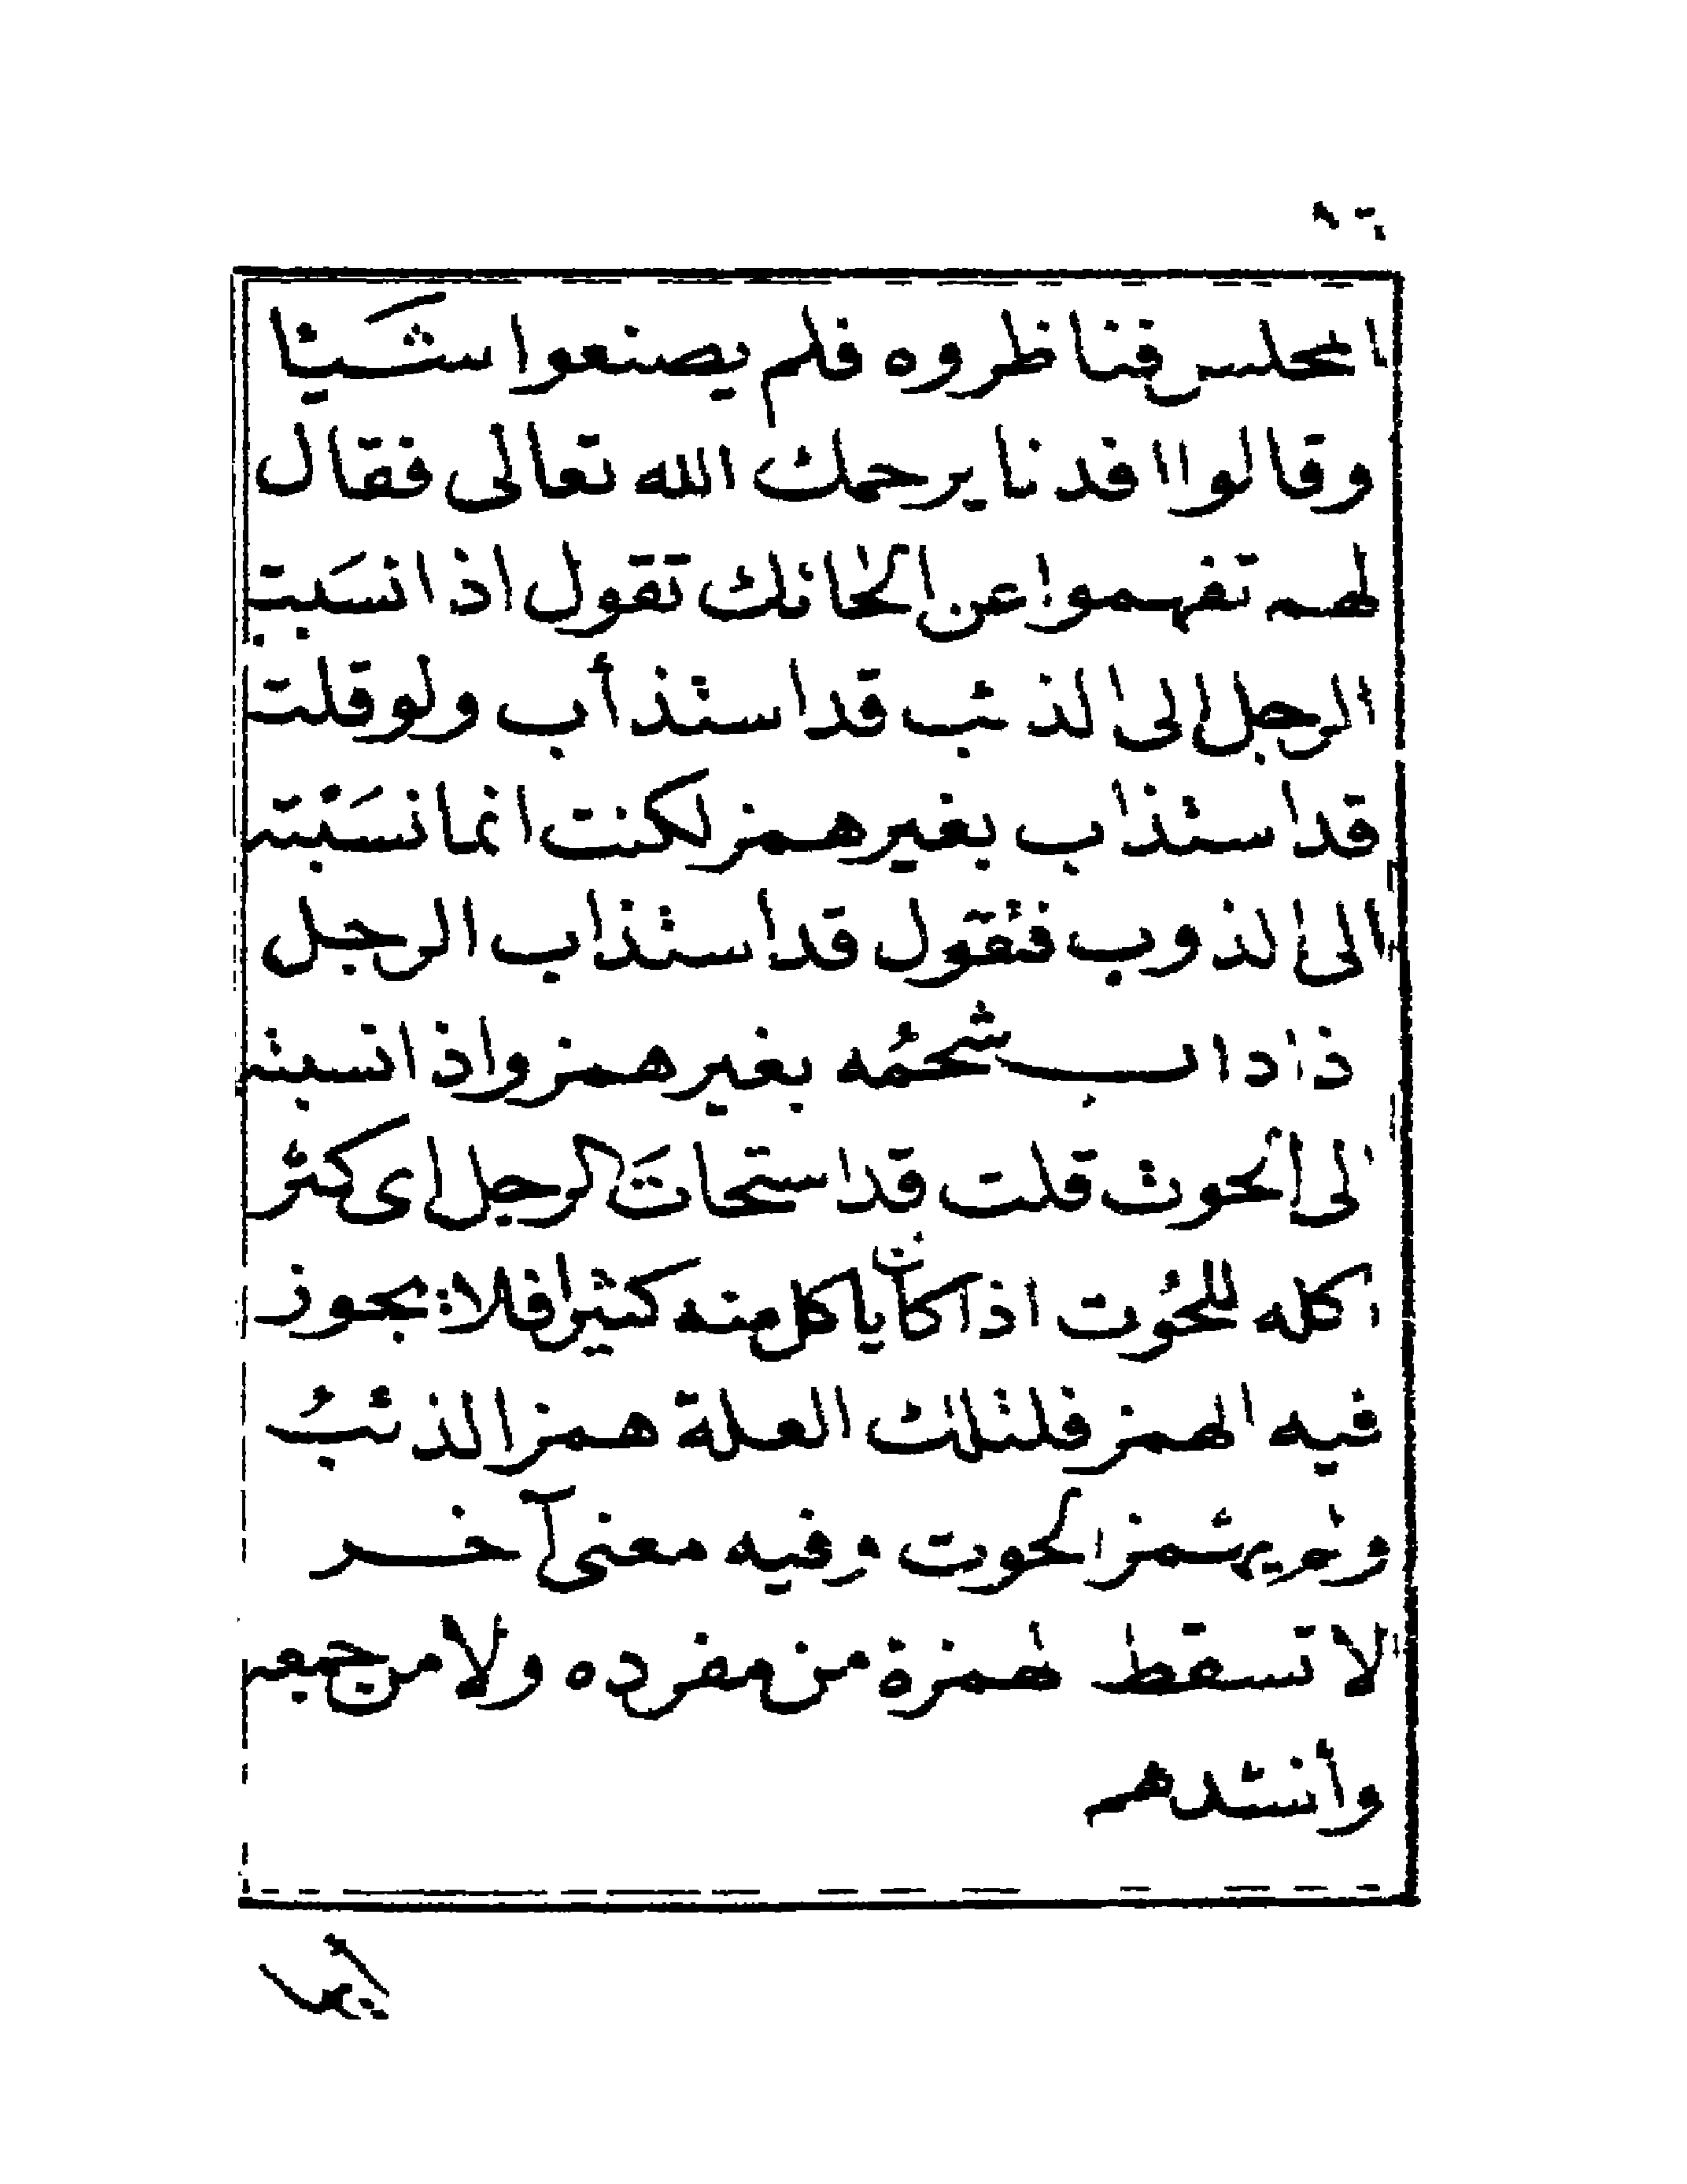 المجلس فناظروه فلم يصنعوا شَيئا
وقالوا افدنا يرحمك الله تعالى فقال
لهم تفهموا عن الحانك تقول اذا نسَبت
الرجل الى الذئب قد استذأب ولو قلت
قد استذاب بغير همز لكنت انما نسَبته
الى الذوب فتقول قد استذاب الرجل
ذا داب شحمُه بغير همز واذا نسبته
الى الحوت قلت قد استحاتَ الرجل اى كثر
اكله للحُوت اذا كان ياكل منه كثيرا فلا يجوز
فيه الهمز فلتلك العلة همز الذئبُ
ولم يهمز الحوت وفيه معنى آخر
لا تسقط الهمزة من مفرده ولا من جمعه
وأنشدهم